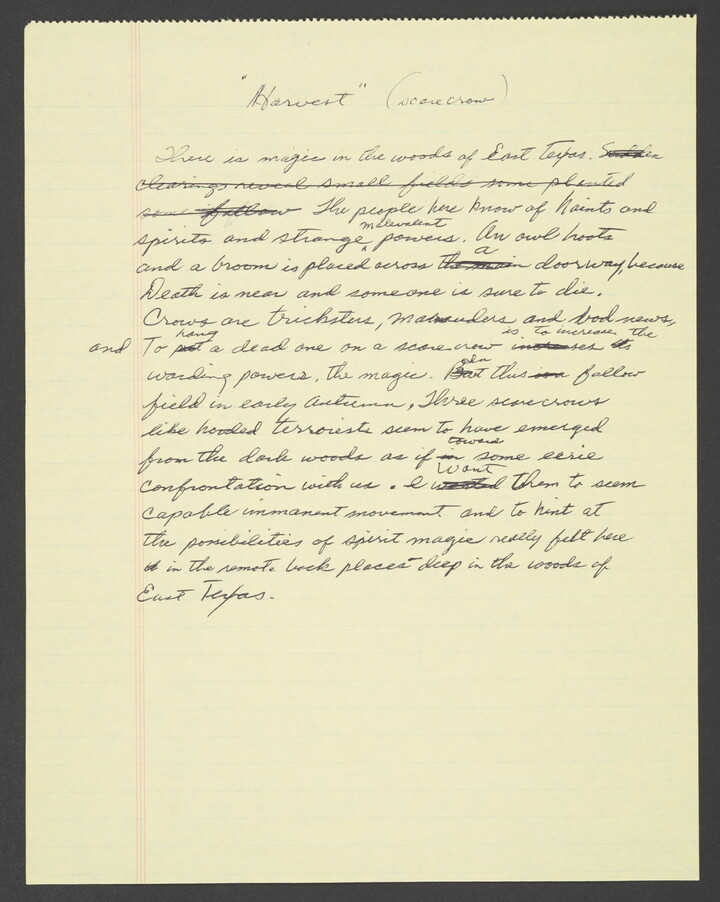 "Harvest" (scarecrow)
There is magic in the woods of East Texas. Sudden
clearings reveal small fields some planted
some fallow The people here know of Haints and
malevolent
spirits and strange ^ powers. An owl hoots
a
and a broom is placed across the main doorway, because
Death is near and someone is sure to die.
Crows are tricksters, marauders and bad news,
hang is to increase the
and To put a dead one on a scarecrow increases its
warding powers, the magic. But this in a fallow
field in early autumn, Three scarecrows
like hooded terrorists seem to have emerged
toward
from the dark woods as if in some eerie
want
confrontation with us. I wanted them to seem
capable immanent movement and to hint at
the possibilities of spirit magic really felt here
in the remote back places deep in the woods of
East Texas.